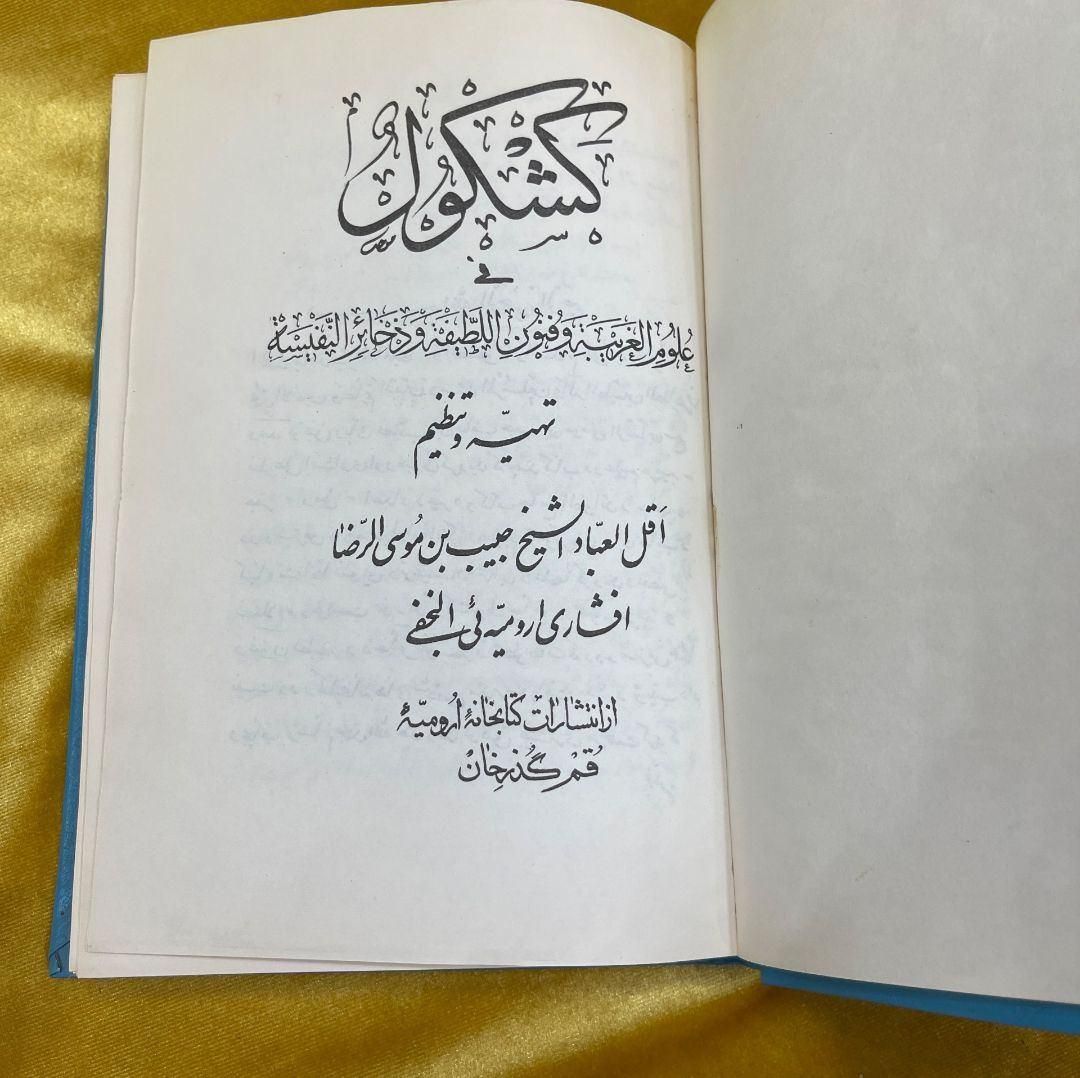 كشكول
في
علوم الغريبة و فنون اللطيفة و ذخائر النفيسة
تهیّه و تنظیم
اَقل العبّاد الشیخ حبیب بن موسی الرّضا
افشاری ارومیّه ئی النجفی
از انتشارات کتابخانهٔ اُرومیّهٔ
قم گذرخان